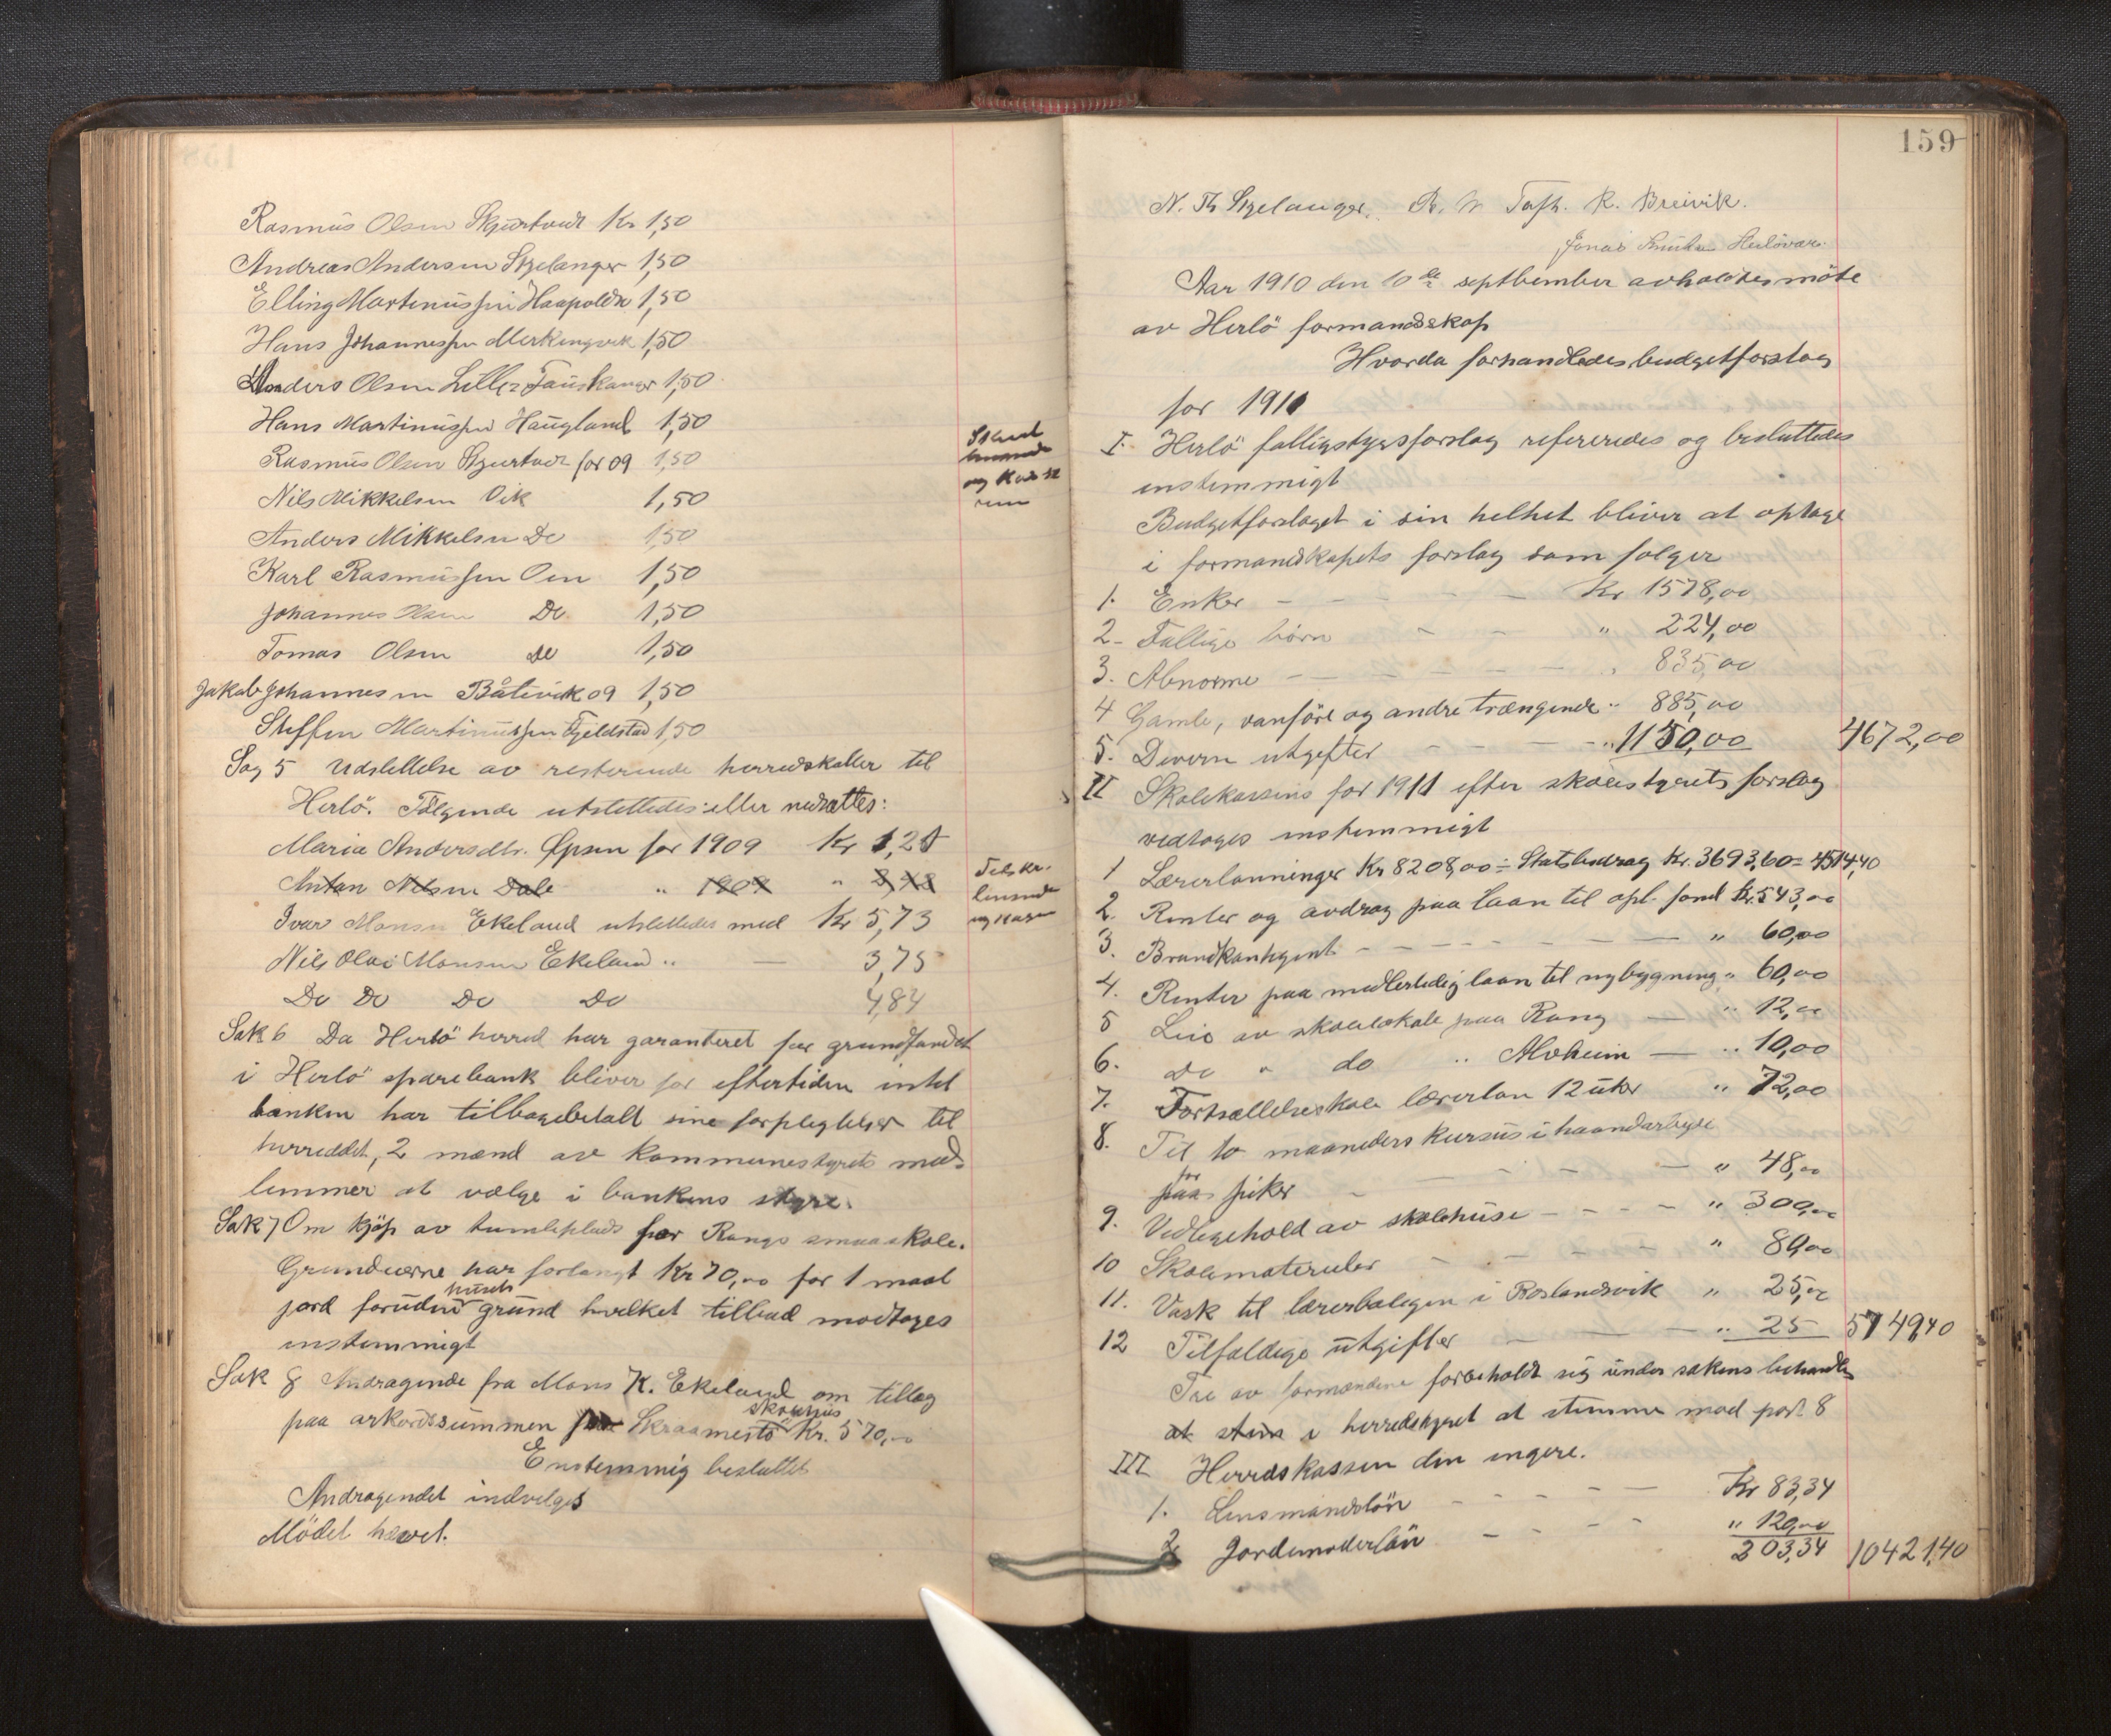 Rasmus Olsen Skjurtveit Kr 1,50
Andreas Andersen Skjelanger 1,50
Elling Martinussen Haapoldn 1,50
Hans Johannessen Merkingsvik 1,50
Anders Olsen Lille Fauskanger 1,50
Hans Martinussen Haugland 1,50
Rasmus Olsen Skjurtveit for 09 1,50
Nils Mikkelsen Vik 1,50
Anders Mikkelsen Do 1,50
Karl Rasmussen Oen 1,50
Johannes Olsen Do 1,50
Tomas Olsen do 1,50
Jakob Johannesen Båtevik 09 1,50
Steffen Martinussen Fjeldstad 1,50
Sag 5 Udslettelse av resterende herredskatter til
Herlö. Følgende utslettedes eller nedsattes:
Maria Andersdtr. Øpsen for 1909 Kr 1,20
Anton Nilsen Dale " 1909 " 3,43
Ivar Monsen Ekeland utslettedes med Kr 5,73
Nils Olai Monsen Ekeland " — 3,75
Do Do Do Do 4,84
Sak 6 Da Herlö herred har garanteret for grundfondet
i Herlö sparebank bliver for eftertiden intil
banken har tilbagebetalt sine forpligtelser til
herreddet, 2 mænd av kommunestyrets med-
lemmer at vælge i bankens styre.
Sak 7 Om kjöp av tumleplads for Rongs smaaskole.
Grundeierne har forlangt Kr 70,00 for 1 maal
jord foruden husets grund hvilket tilbud modtages
enstemmigt
Sak 8 Andragende fra Mons K. Ekeland om tillæg
paa arkordssummen for Skraamestö skolehus Kr. 570,-
Enstemmig besluttet
Andragendet indvilges
Mödet hævet.
159
N. Th Skjelanger. R. Breivik.
Jonas Knutsen Herlövær.
Aar 1910 den 10de septbember avholdtes möte
av Herlö formandskap
Hvorda forhandledes budgetforslag
for 1911
I. Herlö fattigstyrsforslag refereredes og besluttedes
enstemmigt
Budgetforslaget i sin helhet bliver at optage
i formandskapets forslag som følger
1. Enker - - - Kr 1578,00
2- Fattige börn - - " 224,00
3. Abnorme - - - " 835,00
4 Gamle, vanföre og andre trængende " 885,00
5. Diverse utgifter - - - " 1150,00 4672,00
II Skolekassens for 1911 efter skolestyrets forslag
vedtoges enstemmigt
1 Lærerlønninger Kr 8208,00 ÷ Statsbidrag Kr. 3693,60 = 4514,40
2. Renter og avdrag paa laan til opl. fond Kr. 543,00
3. Brandkontigent - - - - " 60,00
4. Renter paa midlertidig laan til nybygning " 60,00
5 Leie av skolelokale paa Rong — " 12,00
6. do " do " Alvheim — " 10,00
7. Fortsættelsesskole lærerløn 12 uker " 72,00
8. Til to maaneders kursus i haandarbeide
for piker - - - " 48,00
9. Vedligehold av skolehuse - - - - " 300,00
10 Skolematerieler - - - - " 80,00
11. Vask til lærerboligen i Roslandsvik " 25,00
12 Tilfældige utgifter - - - " 25 5749,40
Tre av formændene forbeholdt sig under sakens behandle
at stem i herredstyret at stemme mod post 8
III Herredskassen den engere.
1. Lensmandslön - - - - Kr 83,34
2 Jordemoderlön - - - - " 120,00
203,34 10421,40